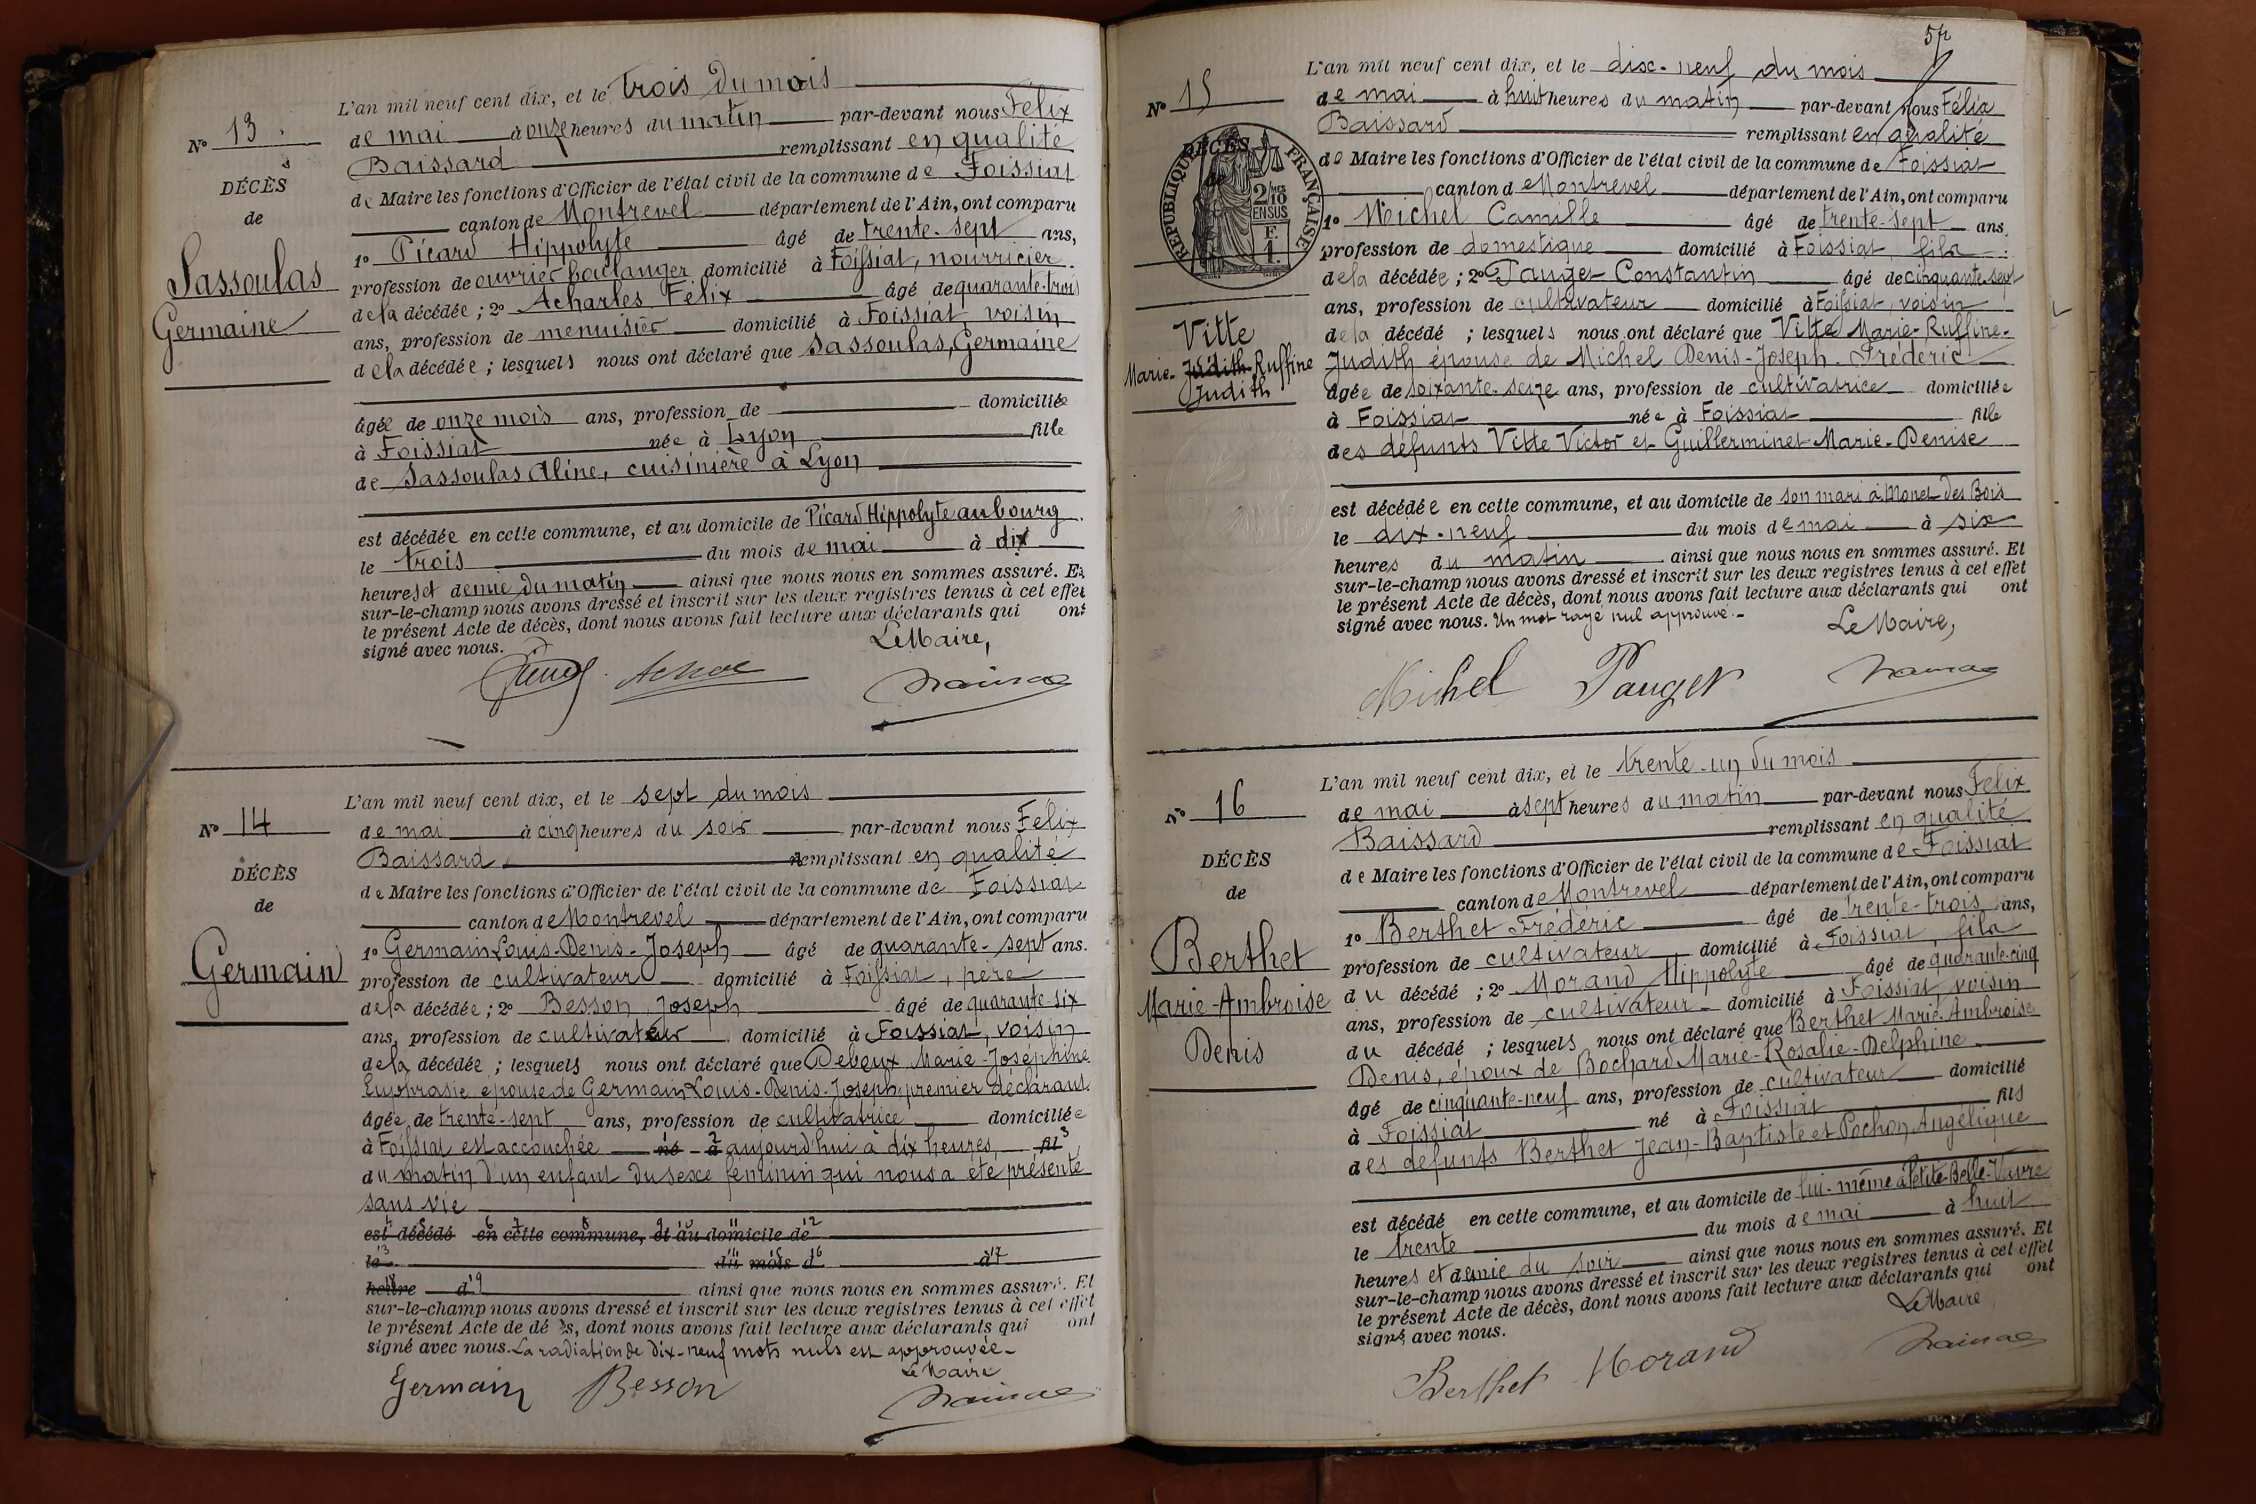 L'an mil neuf cent dix, et le trois du mois
N° 13.
de mai à onze heures du matin par-devant nous Felix
Baissard remplissant en qualité
DÉCÈS
de Maire les fonctions d'Officier de l'état civil de la commune de Foissiat
de
canton de Montrevel département de l'Ain, ont comparu
1° Picard Hippolyte âgé de trente-sept ans,
Sassoulas
profession de ouvrier boulanger domicilié à Foissiat, nourricier
Germaine
de la décédée ; 2° Acharles Félix âgé de quarante-trois
ans, profession de menuisier domicilié à Foissiat, voisin
de la décédée ; lesquels nous ont déclaré que Sassoulas, Germaine
âgée de onze mois ans, profession de domiciliée
à Foissiat née à Lyon fille
de Sassoulas Aline, cuisinière à Lyon
est décédée en cette commune, et au domicile de Picard Hippolyte au bourg
le trois du mois de mai à dix
heures et demie du matin ainsi que nous nous en sommes assuré. Et
sur-le-champ nous avons dressé et inscrit sur les deux registres tenus à cet effet
le présent Acte de décès, dont nous avons fait lecture aux déclarants qui ont
signé avec nous.
Le Maire,
L'an mil neuf cent dix, et le sept du mois
N° 14
de mai à cinq heures du soir par-devant nous Felix
Baissard remplissant en qualité
DÉCÈS
de Maire les fonctions d'Officier de l'état civil de la commune de Foissiat
de
canton de Montrevel département de l'Ain, ont comparu
Germain
1° Germain Louis-Denis-Joseph âgé de quarante-sept ans.
profession de cultivateur domicilié à Foissiat, père
de la décédée ; 2° Besson Joseph âgé de quarante-six
ans, profession de cultivateur domicilié à Foissiat, voisin
de la décédée ; lesquels nous ont déclaré que Deveux Marie-Joséphine
Euphrasie épouse de Germain Louis-Denis-Joseph, premier déclarant
âgée de trente-sept ans, profession de cultivatrice domiciliée
à Foissiat est accouchée né à aujourd'hui à dix heures, fil
du matin d'un enfant du sexe féminin qui nous a été présenté
sans vie
est décédé en cette commune, et au domicile de
le du mois d à
heure d ainsi que nous nous en sommes assuré. Et
sur-le-champ nous avons dressé et inscrit sur les deux registres tenus à cet effet
le présent Acte de décès, dont nous avons fait lecture aux déclarants qui ont
signé avec nous. La radiation de dix-neuf mots nuls est approuvée-
Le Maire
Germain Besson
L'an mil neuf cent dix, et le dix-neuf du mois
N° 15
de mai à huit heures du matin par-devant nous Félix
Baissard remplissant en qualité
DÉCÈS
RÉPUBLIQUE FRANÇAISE
2/10 EN SUS
F. 1.
de Maire les fonctions d'Officier de l'état civil de la commune de Foissiat
canton de Montrevel département de l'Ain, ont comparu
1° Michel Camille âgé de trente-sept ans,
profession de domestique domicilié à Foissiat, fils
de la décédée ; 2° Pauget Constantin âgé de cinquante-sept
ans, profession de cultivateur domicilié à Foissiat, voisin
Vitte
Marie-Judith Ruffine
Judith
de la décédé ; lesquels nous ont déclaré que Vitte Marie-Ruffine-
Judith épouse de Michel Denis-Joseph-Fréderic
âgée de soixante-seize ans, profession de cultivatrice domiciliée
à Foissiat née à Foissiat fille
des défunts Vitte Victor et Guillerminet Marie-Denise
est décédée en cette commune, et au domicile de son mari à Monet-des-Bois
le dix-neuf du mois de mai à six
heures du matin ainsi que nous nous en sommes assuré. Et
sur-le-champ nous avons dressé et inscrit sur les deux registres tenus à cet effet
le présent Acte de décès, dont nous avons fait lecture aux déclarants qui ont
signé avec nous. Un mot rayé nul approuvé.-
Le Maire,
Michel Pauget
L'an mil neuf cent dix, et le trente-un du mois
N° 16
de mai à sept heures du matin par-devant nous Felix
Baissard remplissant en qualité
DÉCÈS
de Maire les fonctions d'Officier de l'état civil de la commune de Foissiat
de
canton de Montrevel département de l'Ain, ont comparu
1° Berthet Fréderic âgé de trente-trois ans,
Berthet
Marie-Ambroise
Denis
profession de cultivateur domicilié à Foissiat, fils
du décédé ; 2° Morand Hippolyte âgé de quarante-cinq
ans, profession de cultivateur domicilié à Foissiat, voisin
du décédé ; lesquels nous ont déclaré que Berthet Marie-Ambroise
Denis, époux de Bochard Marie-Rosalie-Delphine
âgé de cinquante-neuf ans, profession de cultivateur domicilié
à Foissiat né à Foissiat fils
des défunts Berthet Jean-Baptiste et Pochon Angélique
est décédé en cette commune, et au domicile de lui-même à Petite-Belle-Vavre
le trente du mois de mai à huit
heures et demie du soir ainsi que nous nous en sommes assuré. Et
sur-le-champ nous avons dressé et inscrit sur les deux registres tenus à cet effet
le présent Acte de décès, dont nous avons fait lecture aux déclarants qui ont
signé avec nous.
Le Maire
Berthet Morand